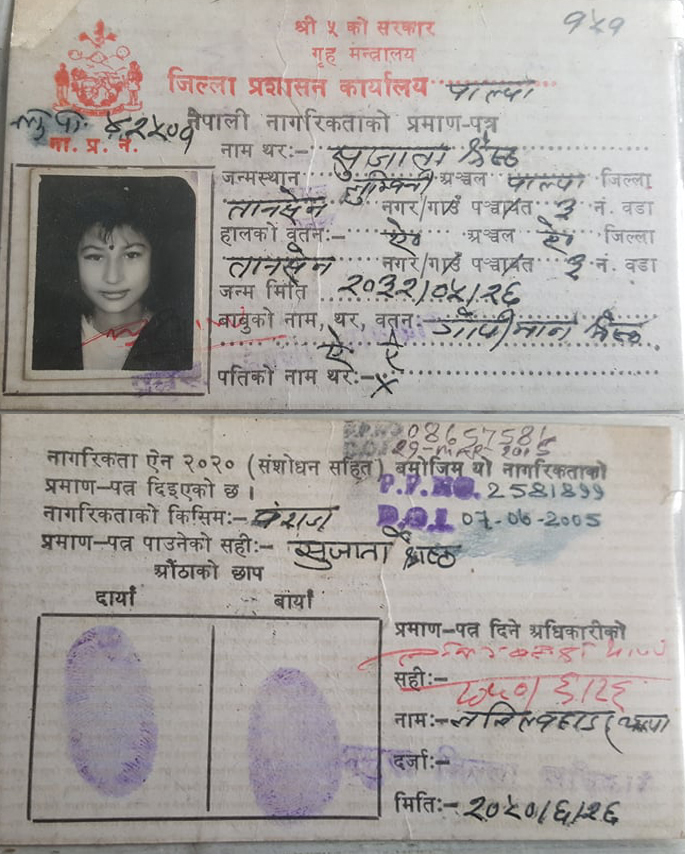 श्री ५ को सरकार
गृह मन्त्रालय
९५१
जिल्ला प्रशासन कार्यालय पाल्पा
नेपाली नागरिकताको प्रमाण-पत्र
ना. प्र. नं.
नाम थर:- सुजाता श्रेष्ठ
जन्मस्थान लुम्बिनी अञ्चल पाल्पा जिल्ला
तानसेन नगर/गाउँ पञ्चायत ३ नं. वडा
हालको वतन:- ऐ॰ अञ्चल ऐ॰ जिल्ला
तानसेन नगर/गाउँ पञ्चायत ३ नं. वडा
जन्म मिति २०३२/०५/२६
बाबुको नाम, थर, वतन: गोपी मान श्रेष्ठ
ऐ ऐ
पतिको नाम थर:- X
08657581
29-MAR 2015
नागरिकता ऐन २०२० (संशोधन सहित) बमोजिम यो नागरिकताको
प्रमाण-पत्र दिइएको छ ।
P.P.NO. 2581899
नागरिकताको किसिम:- वंशज
D.O.I 07-06-2005
प्रमाण-पत्र पाउनेको सही:- सुजाता श्रेष्ठ
औंठाको छाप
दायाँ बायाँ
प्रमाण-पत्र दिने अधिकारीको
सही:-
२०५०/६/२६
नाम:-
दर्जा:-
मिति:- २०५०/६/२६